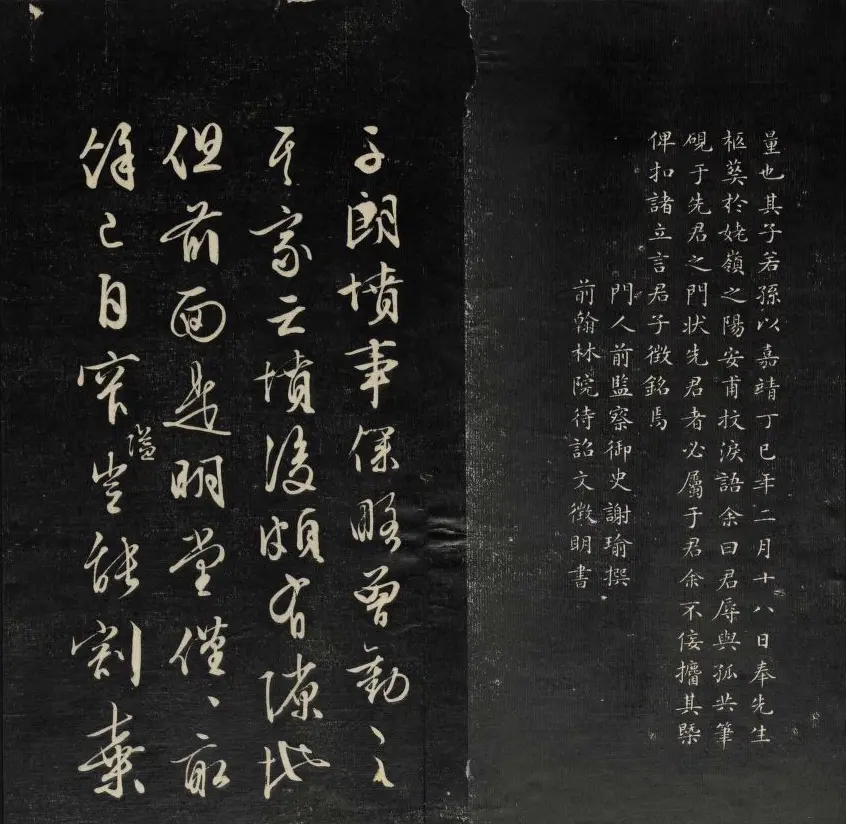 量也其子若孫以嘉靖丁巳年二月十八日奉先生
柩葬於姥嶺之陽安甫抆淚語余曰君辱與孤共筆
硯于先君之門狀先君者必屬于君余不佞攟其槩
俾扣諸立言君子徵銘焉
門人前監察御史謝瑜撰
前翰林院待詔文徵明書
子朗墳事保略曾勸之
其家云墳後頗有隙地
但前面是明堂僅〻取
隘
餘已自窄豈能割棄